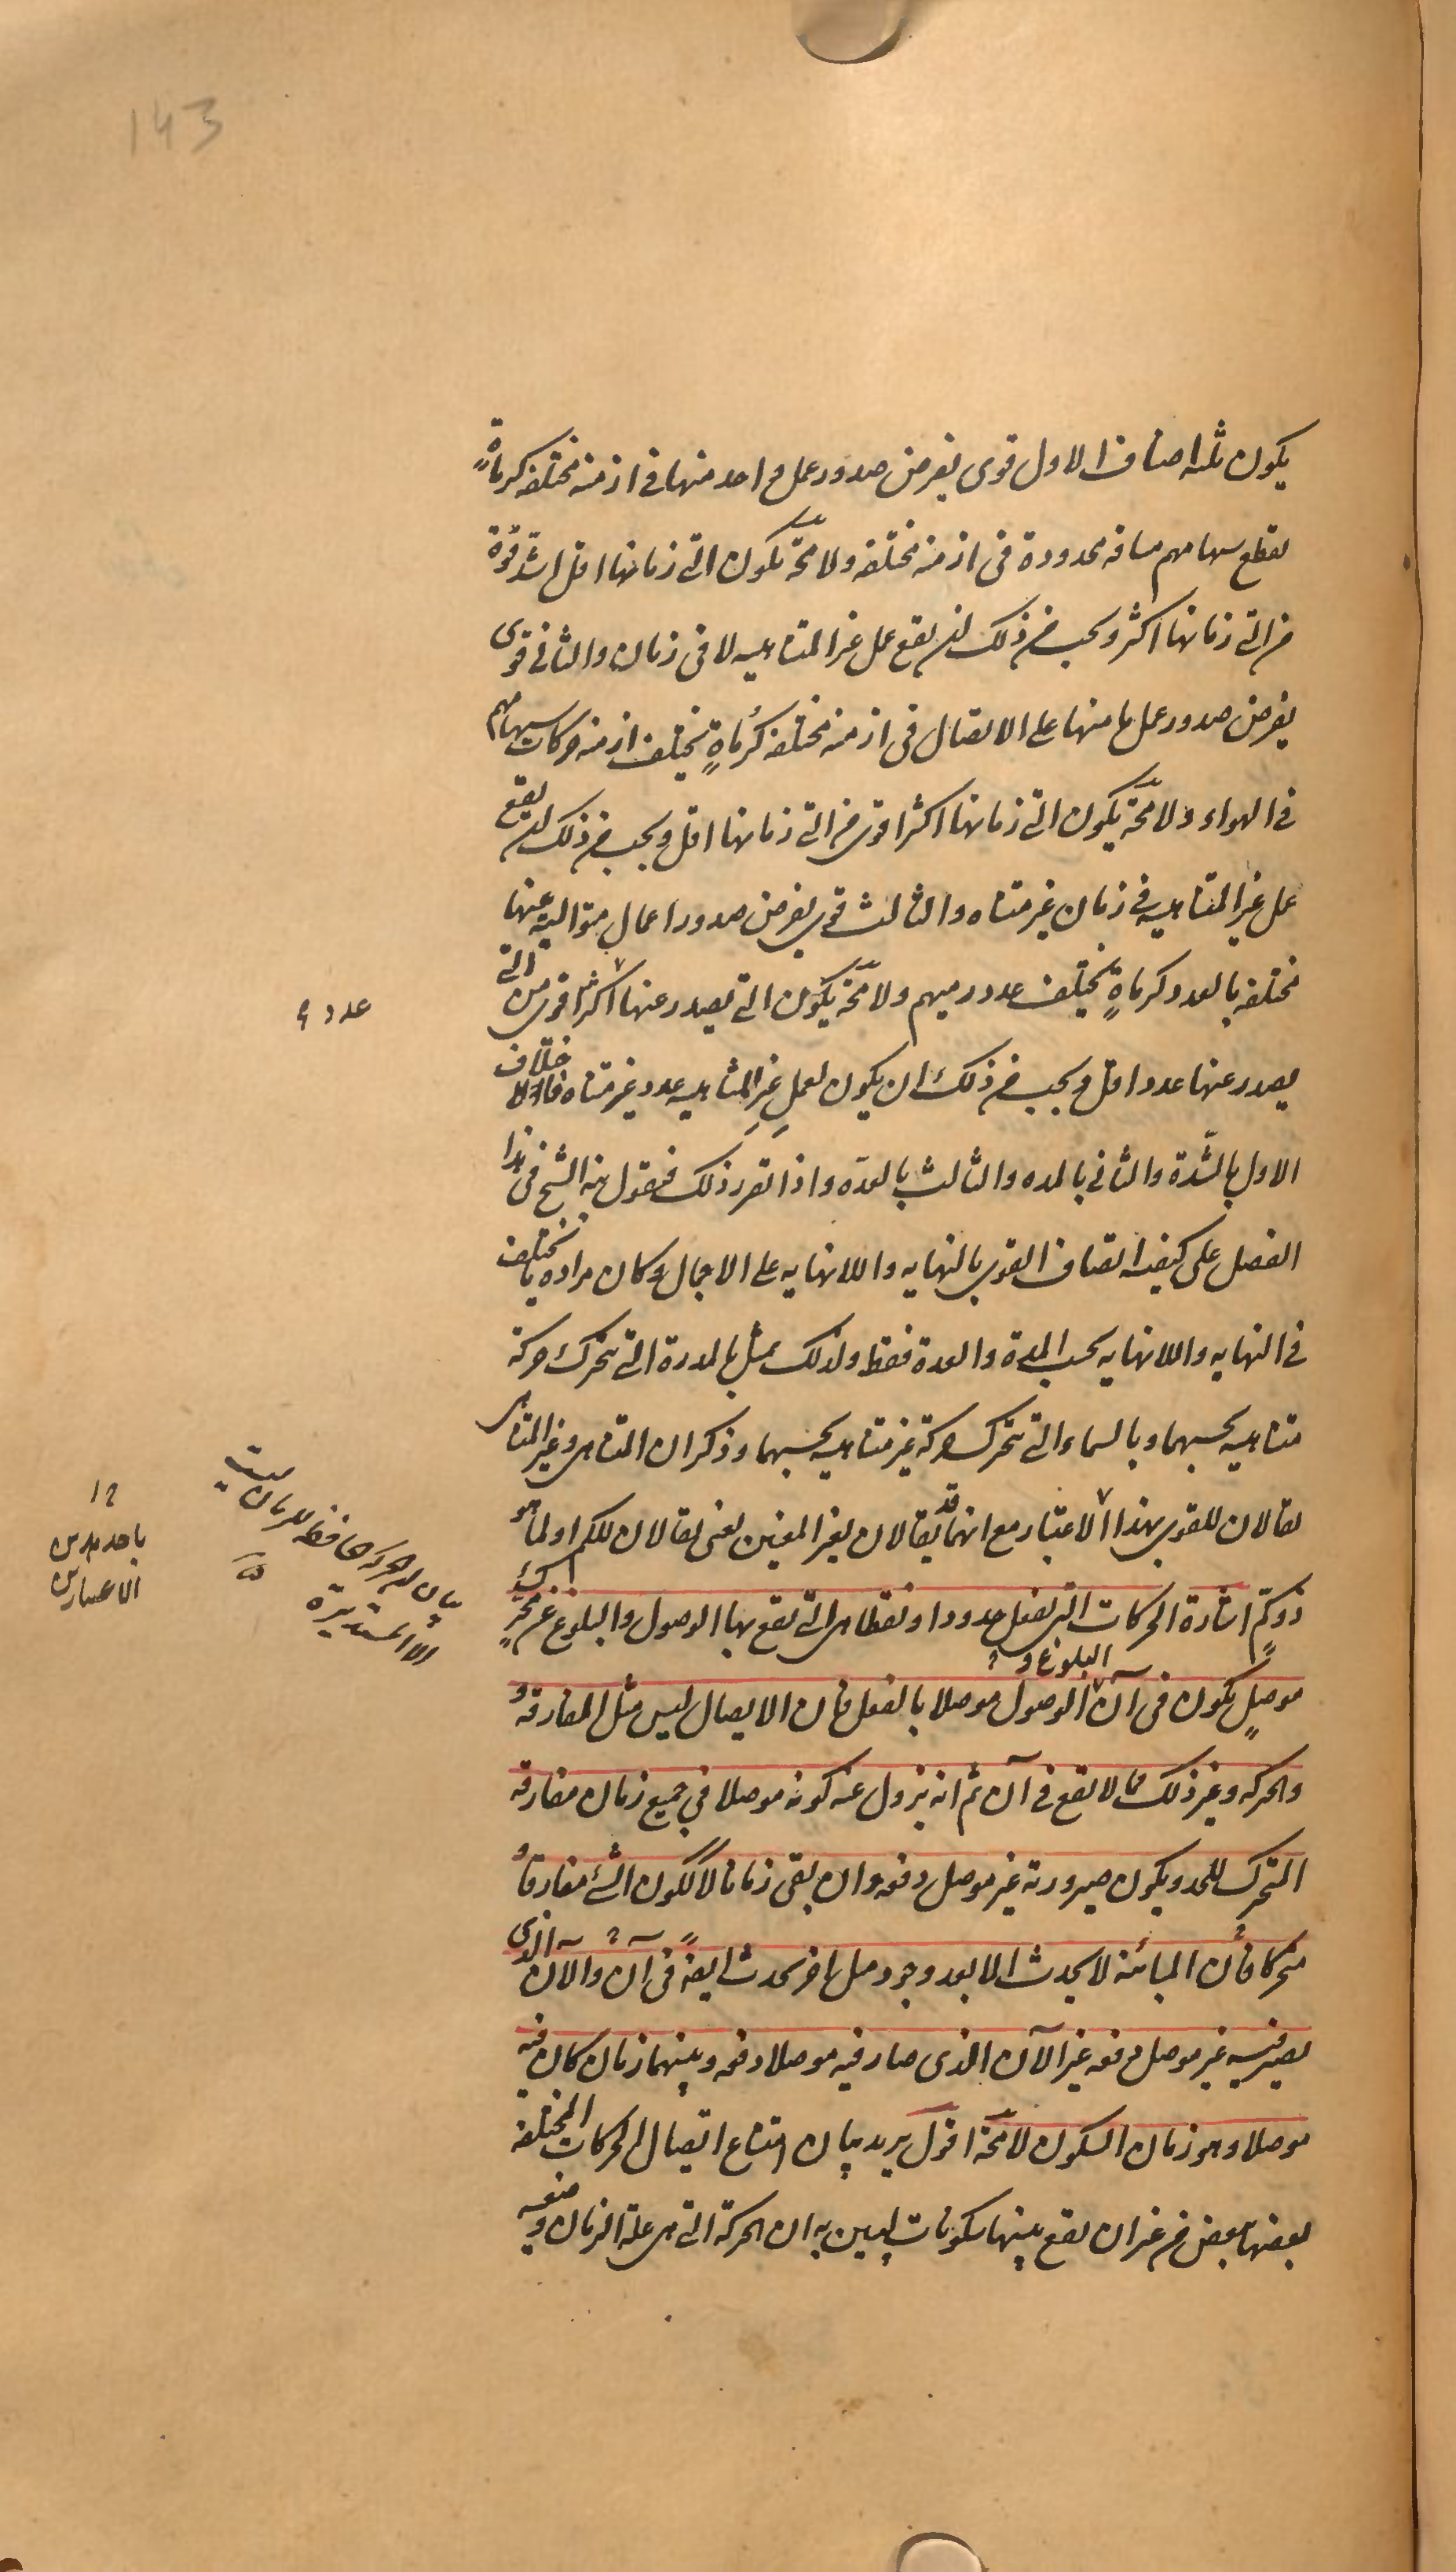 143
يكون ثلثه اصناف الاول قوى يفرض صدور عمل واحد منها فى ازمنه مختلفه كرماةٍ
يقطع سهامهم مسافه محدودة فى ازمنه مختلفه ولا محّة يكون التى زمانها اقل اشد قوة
من التى زمانها اكثر ويجب من ذلك ان يقع عمل غير المتناهيه لا فى زمان والثانى قوى
يفرض صدور عمل ما منها على الاتصال فى ازمنه مختلفه كرُماةٍ يختلف ازمنه حركات سهامهم
فى الهواء ولا محّة يكون التى زمانها اكثر اقوى من التى زمانها اقل ويجب من ذلك ان يقع
عمل غير المتناهيه فى زمان غير متناه والثالث قوى يفرض صدور اعمال متواليه عنها
مختلفه بالعدد كرماةٍ يختلف عدد رميهم ولا محّة يكون التى يصدر عنها اكثر اقوى من التى
عدد
يصدر عنها عدد اقل ويجب من ذلك ان يكون لعمل غير المتناهيه عدد غير متناه فاختلاف
الاول بالشّدة والثانى بالمده والثالث بالعدّه واذا تقرر ذلك فنقول نبه الشيخ فى هذا
الفصل على كيفيه اتصاف القوى بالنهايه واللانهايه على الاجمال وكان مراده ما يختلف
فى النهايه واللانهايه بحسب المدة والعدة فقط ولذلك مثل بالمدرة التى تتحرك حركة
متناهيه بحسبهما وبالسماء التى تتحرك حركة غير متناهيه بحسبهما وذكر ان المتناهى وغير المتناهى
يقالان للقوى بهذا الاعتبار مع انهما قد يقالان بغير المعنيين يعنى يقالان للكم او لما هو
باحد هذين
الاعتبارين
ذو كمٍّ اشارة الحركات التى تفعل حدودا ونقطا هى التى تقع بها الوصول والبلوغ عن محرك
موصلٍ يكون فى آن البلوغ و الوصول موصلا بالفعل فان الايصال ليس مثل المفارقه
والحركه وغير ذلك مما لا يقع فى آن ثم انه يزول عنه كونه موصلا فى جميع زمان مفارقه
المتحرك للحد ويكون صيرورته غير موصل دفعه وان بقى زمانا لا ككون الشئ مفارقا
متحركا فأن المبائنة لا يحدث الا بعد وجود ميل اخر يحدث ايضاً فى آن والآن الذى
يصير فيه غير موصل دفعه غير الآن الذى صار فيه موصلا دفعه وبينهما زمان كان فيه
موصلا وهو زمان السكون لا محّة اقول يريد بيان امتناع اتصال الحركات المختلفه
بعضها ببعض من غير ان يقع بينها سكونات ليبين به ان الحركة التى هى علة الزمان
بيان ان الحركه الحافظه للزمان ليست
الا المستديرة